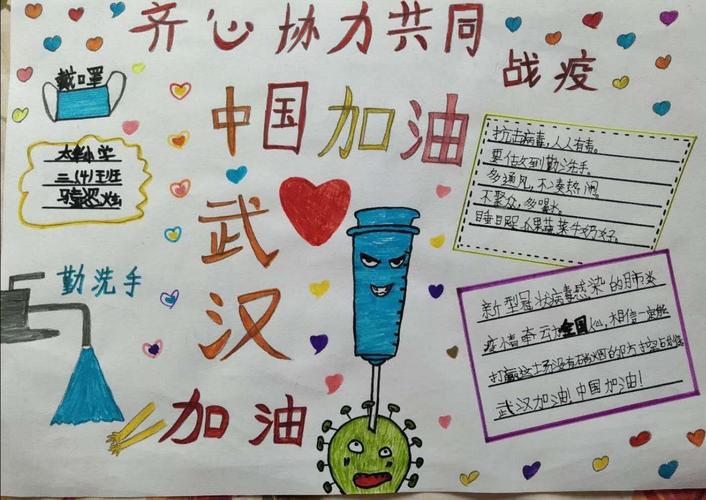 齐心协力共同
战疫
戴口罩
中国加油
三(4)班
抗击病毒,人人有责。
要做到勤洗手。
多通风,不凑热闹。
不聚众,多喝水。
武
勤洗手
汉
新型冠状病毒感染的肺炎
疫情牵动全国人心,相信一定能
打赢这场没有硝烟的
武汉加油!中国加油!
加油